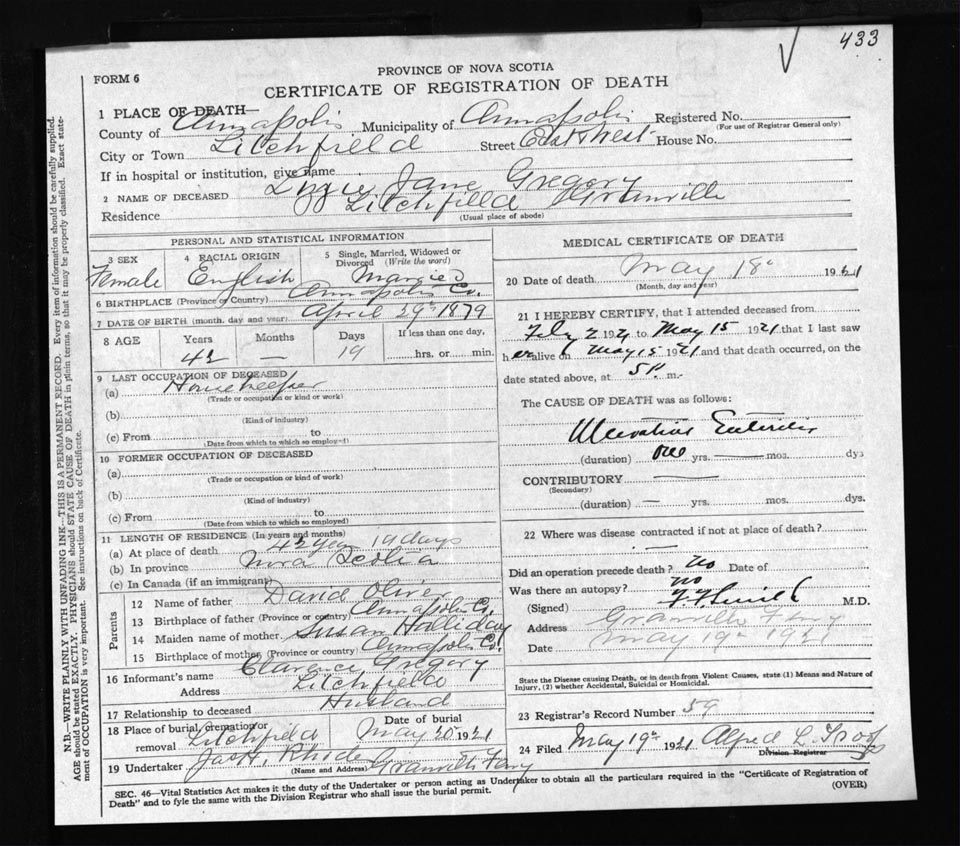 433
FORM 6
PROVINCE OF NOVA SCOTIA
CERTIFICATE OF REGISTRATION OF DEATH
1 PLACE OF DEATH—
County of Annapolis Municipality of Annapolis Registered No.
(For use of Registrar General only)
City or Town Litchfield Street East & West House No.
If in hospital or institution, give name
2 NAME OF DECEASED Lizzie Jane Gregory
Residence Litchfield Granville
(Usual place of abode)
PERSONAL AND STATISTICAL INFORMATION
3 SEX Female
4 RACIAL ORIGIN English
5 Single, Married, Widowed or Divorced (Write the word) Married
6 BIRTHPLACE (Province or Country) Annapolis Co.
7 DATE OF BIRTH (month, day and year) April 29th 1879
8 AGE Years 42 Months — Days 19 If less than one day, hrs. or min.
9 LAST OCCUPATION OF DECEASED
(a) Housekeeper
(Trade or occupation or kind or work)
(b)
(Kind of industry)
(c) From to
(Date from which to which so employed)
10 FORMER OCCUPATION OF DECEASED
(a)
(Trade or occupation or kind of work)
(b)
(Kind of industry)
(c) From to
(Date from which to which so employed)
11 LENGTH OF RESIDENCE (In years and months)
(a) At place of death 42 years 19 days
(b) In province Nova Scotia
(c) In Canada (if an immigrant)
Parents
12 Name of father David Oliver
13 Birthplace of father (Province or country) Annapolis Co.
14 Maiden name of mother Susan Holliday
15 Birthplace of mother (Province or country) Annapolis Co.
16 Informant's name Clarence Gregory
Address Litchfield
17 Relationship to deceased Husband
18 Place of burial, cremation or removal Litchfield Date of burial May 20 1921
19 Undertaker Jas H. Rhodes Granville Ferry
(Name and Address)
MEDICAL CERTIFICATE OF DEATH
20 Date of death May 18th 1921
(Month, day and year)
21 I HEREBY CERTIFY, that I attended deceased from
Feby 2 1921 to May 15 1921 that I last saw
her alive on May 15 1921 and that death occurred, on the
date stated above, at 5 P. m.
The CAUSE OF DEATH was as follows:
Ulcerative Enteritis
(duration) one yrs. — mos. dys
CONTRIBUTORY —
(Secondary)
(duration) — yrs. mos. dys.
22 Where was disease contracted if not at place of death?
—
Did an operation precede death? no Date of
Was there an autopsy? no
(Signed) M.D.
Address Granville Ferry
Date May 19th 1921
State the Disease causing Death, or in death from Violent Causes, state (1) Means and Nature of
Injury, (2) whether Accidental, Suicidal or Homicidal.
23 Registrar's Record Number 59
24 Filed May 19th 1921 Alfred L. Troop
Division Registrar
SEC. 46—Vital Statistics Act makes it the duty of the Undertaker or person acting as Undertaker to obtain all the particulars required in the "Certificate of Registration of
Death" and to fyle the same with the Division Registrar who shall issue the burial permit.
(OVER)
N.B.—WRITE PLAINLY WITH UNFADING INK—THIS IS A PERMANENT RECORD. Every item of information should be carefully supplied.
AGE should be stated EXACTLY. PHYSICIANS should STATE CAUSE OF DEATH in plain terms, so that it may be properly classified. Exact state-
ment of OCCUPATION is very important. See instructions on back of Certificate.